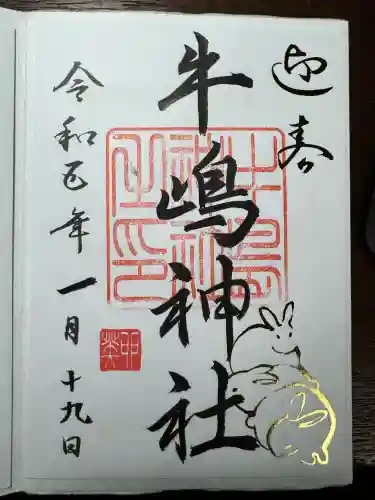 迎春
牛嶋神社
令和五年一月十九日
牛嶋神社之印